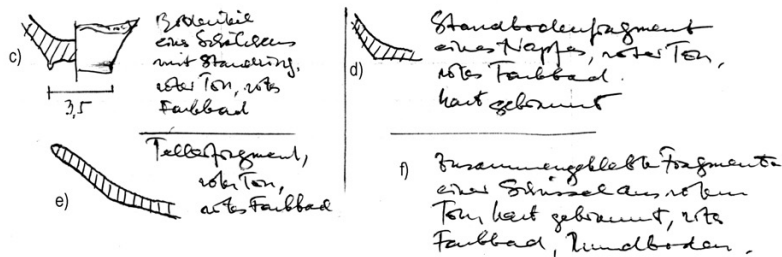 c)
Bodenteil
eines Schälchens
mit Standring,
roter Ton, rotes
Farbbad
3,5
d)
Standbodenfragment
eines Napfes, roter Ton,
rotes Farbbad.
hart gebrannt
e)
Tellerfragment,
roter Ton,
rotes Farbbad
f)
Zusammengeklebte Fragmente
einer Schüssel aus rotem
Ton, hart gebrannt, rotes
Farbbad, Rundboden.